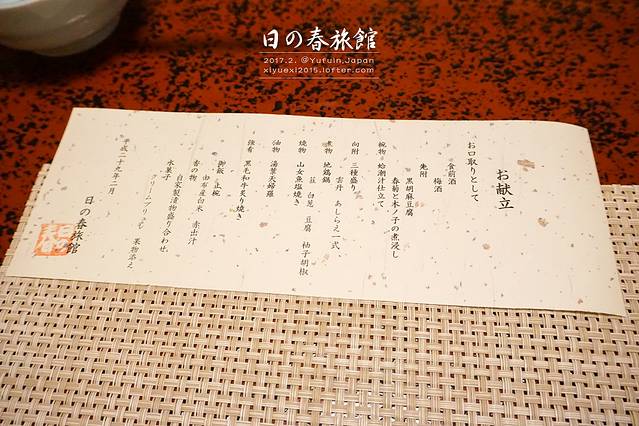 日の春旅館
2017.2. @Yufuin,Japan
xiyuexi2015.lofter.com
お献立
お口取りとして
食前酒
梅酒
先附
黒胡麻豆腐
春菊と木ノ子の煮浸し
椀物 蛤潮汁仕立て
向附 三種盛り
雲丹 あしらえ一式
煮物 地鶏鍋
豆腐 柚子胡椒
焼物 山女魚塩焼き
油物 湯葉天婦羅
強肴 黒毛和牛炙り焼き
御飯 止椀
由布産白米 赤出汁
香の物
自家製漬物盛り合わせ
水菓子
クリームブリュレ 果物添え
平成二十九年二月
日の春旅館